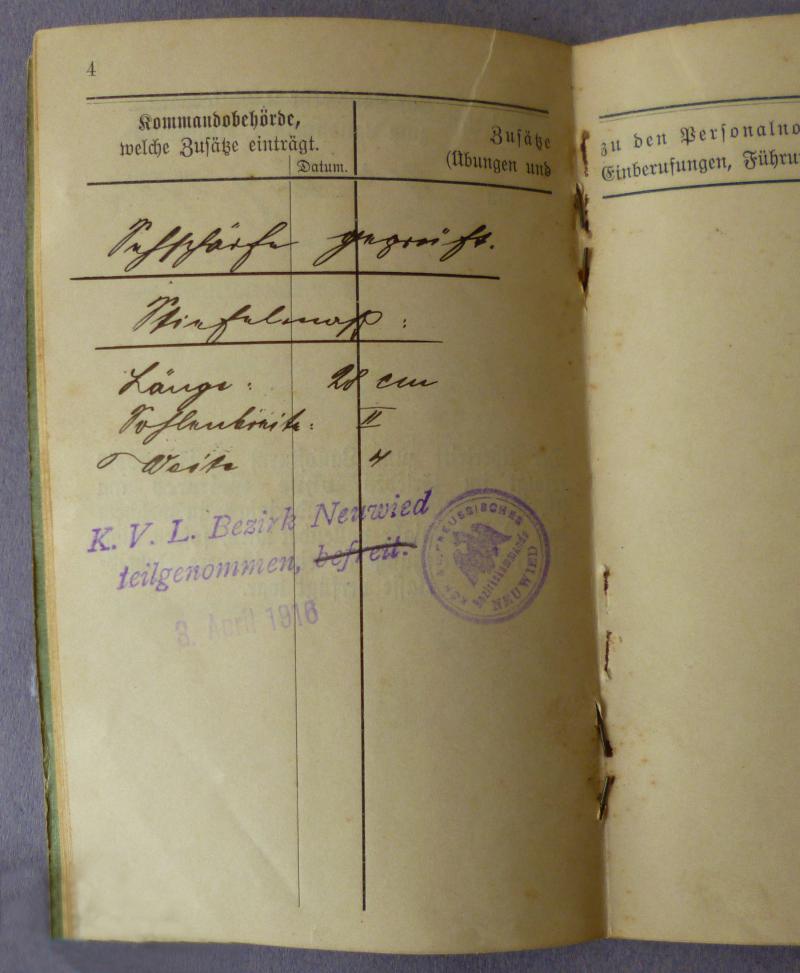 4
Kommandobehörde,
welche Zusätze einträgt.
Datum.
Zusätze
(Übungen und
Sehschärfe geprüft.
Stiefelmaß:
Länge: 28 cm
Sohlenbreite: II
Weite 4
K. V. L. Bezirk Neuwied
teilgenommen, befreit.
3. April 1916
KÖN. PREUSSISCHES
Bezirkskommando
NEUWIED
zu den Personalno
Einberufungen, Führu